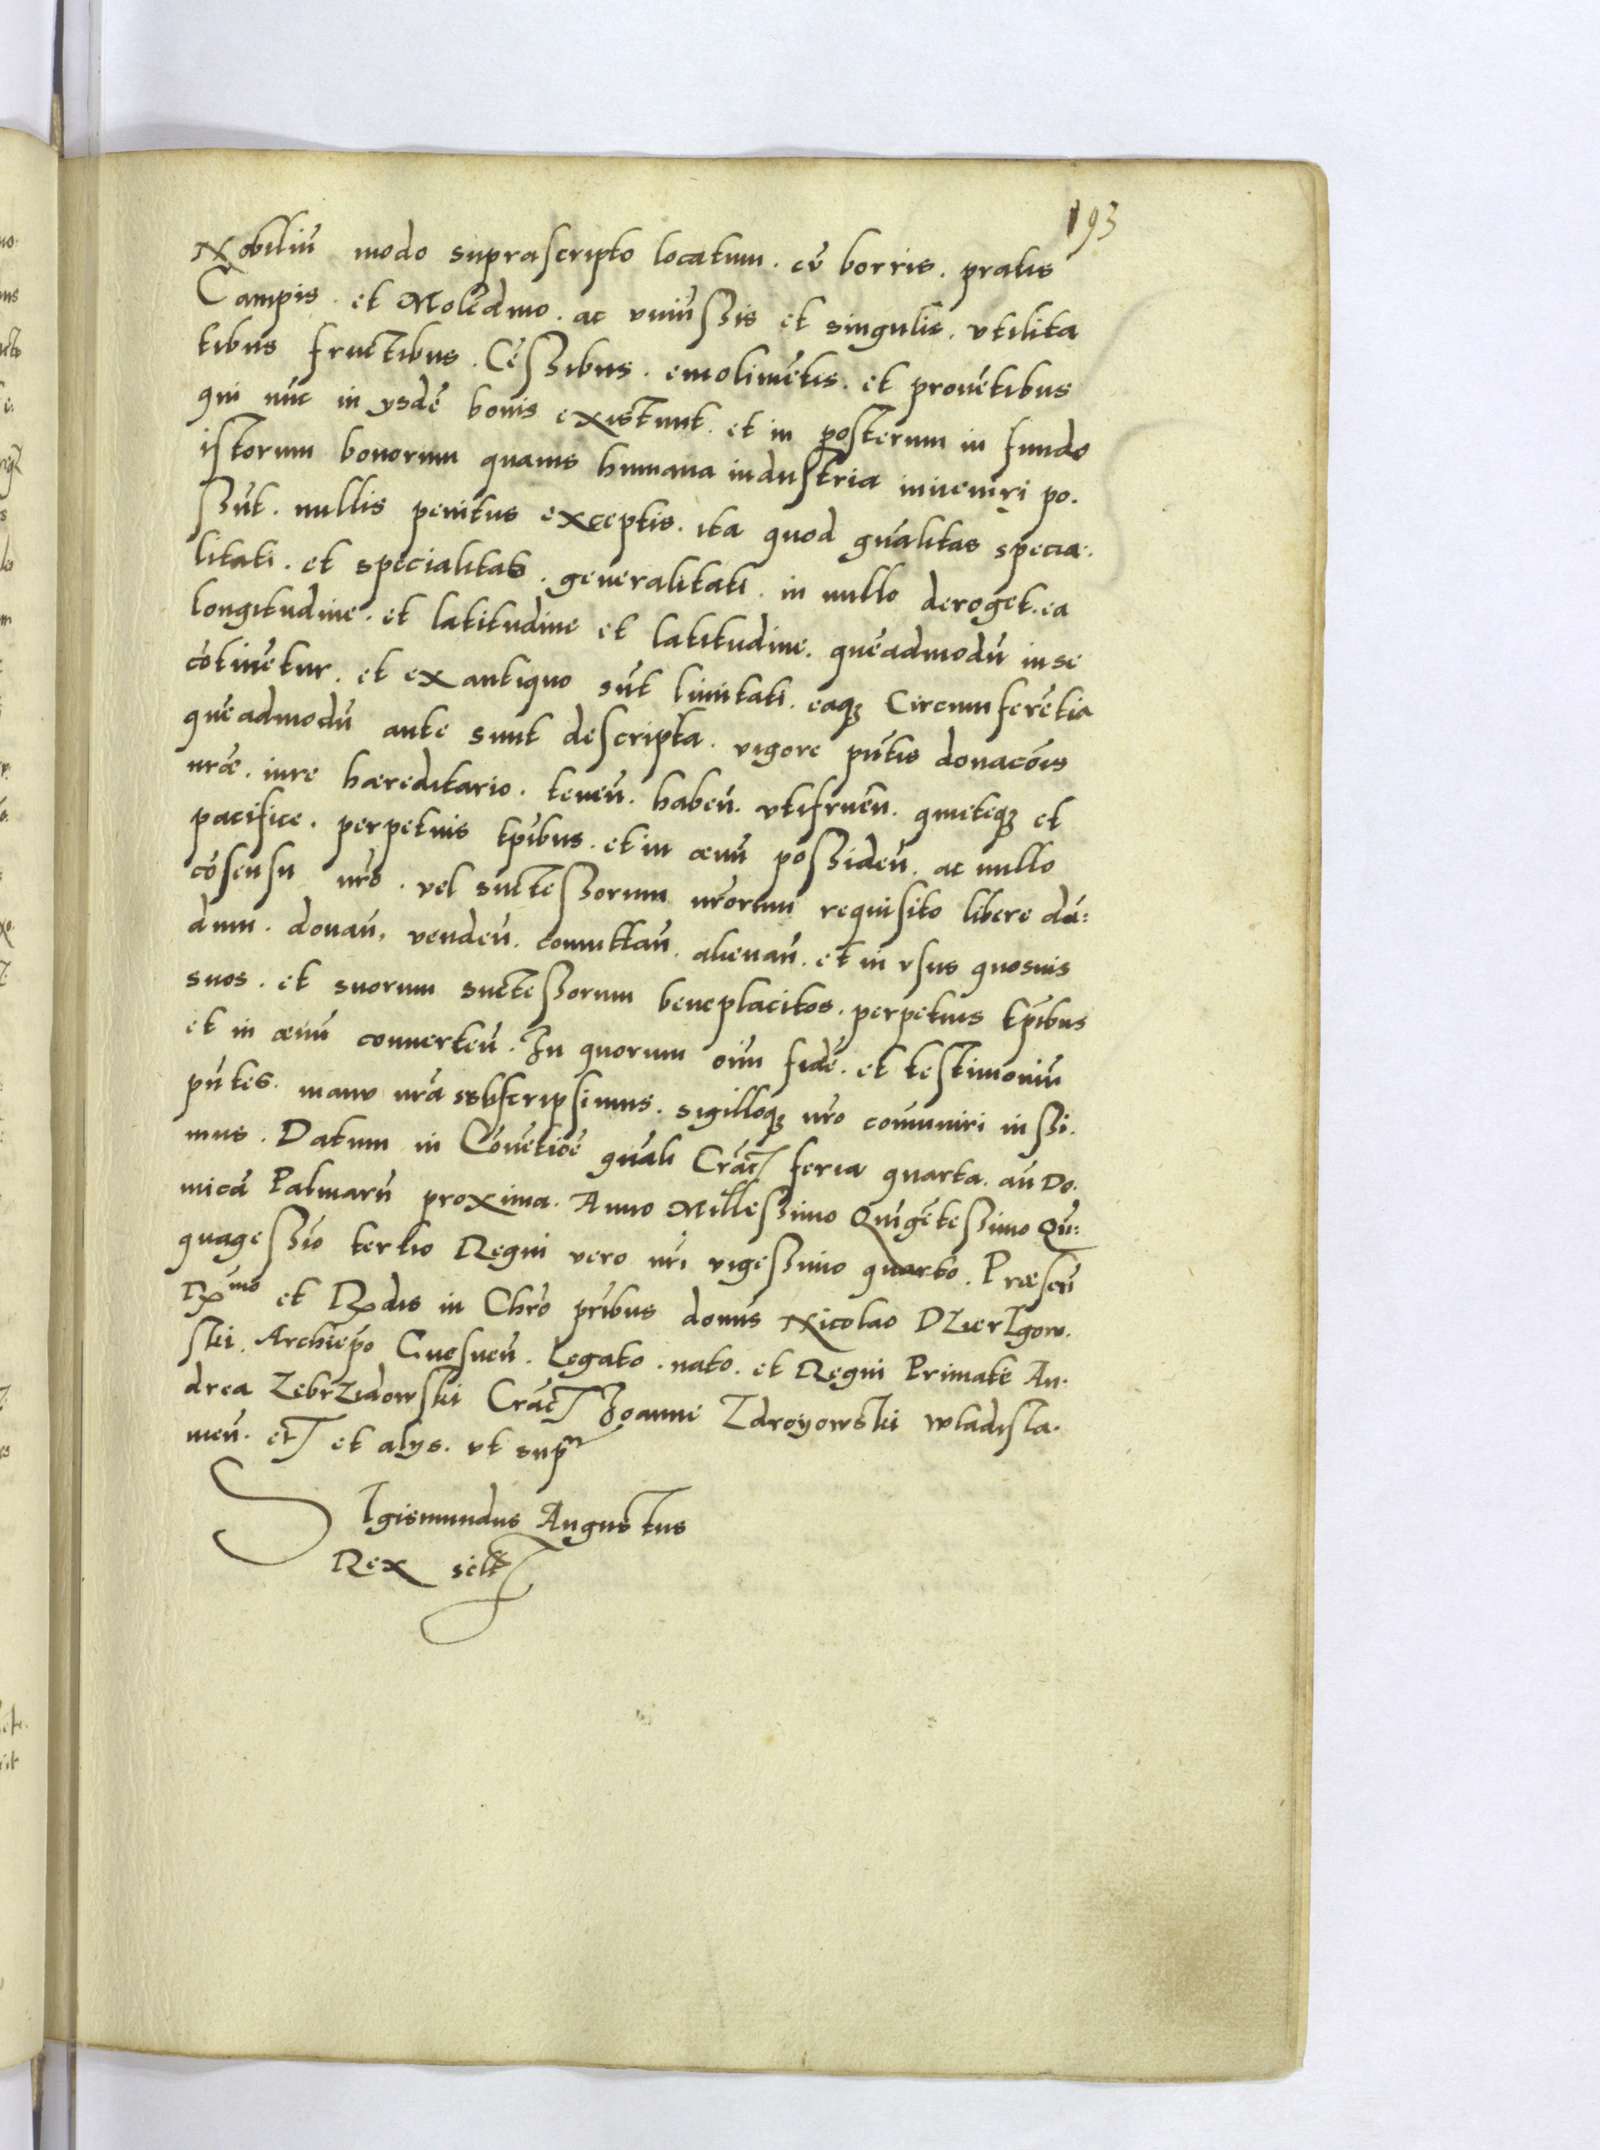 193
Nobiliū modo suprascripto locatum. cū borris. pratis
Campis. et Molēdino. ac vniussis et singulis. vtilita
tibus fructibus. Cēssibus. emolimētis. et prouētibus
qui nūc in ysdē bonis existunt. et in posterum in fundo
istorum bonorum quauis humana industria inueniri po.
ssūt. nullis penitus exceptis. ita quod gn̄alitas specia.
litati. et specialitas. generalitati. in nullo deroget. ea
longitudine. et latitudine et latitudine. quēadmodū in se
cōtinētur. et ex antiquo sūt limitati. eaqȝ Circumferētia
quēadmodū ante sunt descripta. vigore pn̄tis donacōis
nr̄æ. iure hæreditario. tenen̄. haben̄. vtifruen̄. quieteqȝ et
pacifice. perpetuis tp̄ibus. et in æuū possiden̄. ac nullo
cōsensu nr̄o. vel suctessorum nr̄orum requisito libere dā:
dum. donan̄, venden̄. comuttan̄. alienan̄. et in vsus quosuis
suos. et suorum suctessorum beneplacitos. perpetuis tp̄ibus
et in æuū conuerten̄. In quorum oīm fidē. et testimoniū
pn̄tes. manv nr̄a ssbscripsimus. sigilloqȝ nr̄o comuniri iussi.
mus. Datum in Cōuetiōe gn̄ali Crac̄ feria quarta. an̄ Do.
micā Palmarū proxima. Anno Millessimo Quīgētessimo Qū:
quagessīo tertio Regni vero nr̄i vigessimo quarto. Præsen̄
Rx̄mo et Rx̄dis in Chr̄o pr̄ibus domīs Nicolao Dzierzgow.
ski. Archiep̄o Gnesnen̄. Legato. nato. et Regni Primate An.
drea Zebrzidowski Crac̄ Joanne Zdroyowski wladisla.
uien̄. et̄ et alijs. vt supr
Sigismundus Augustus
Rex